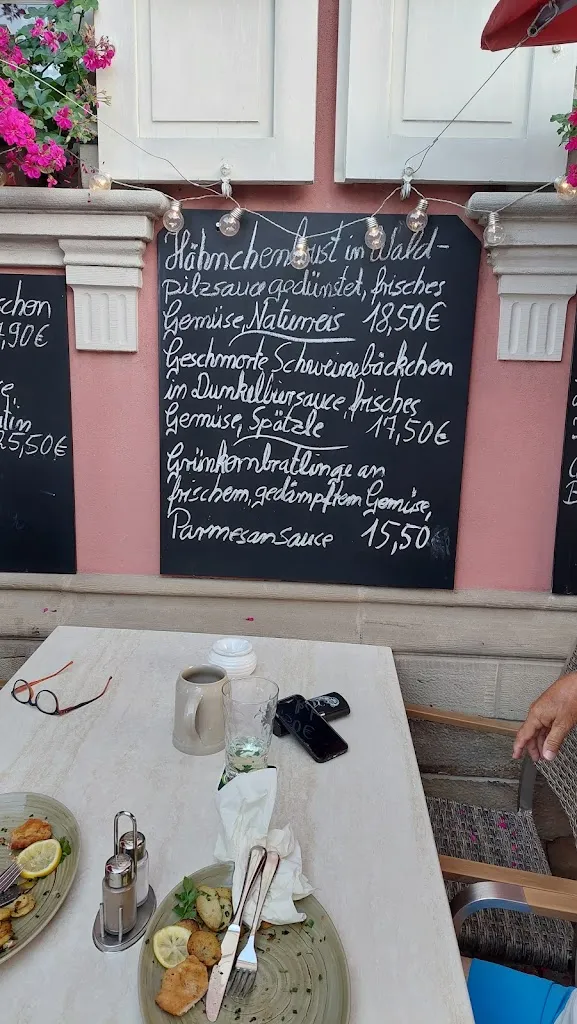 schen
,90€
e,
atin
25,50€
Hähnchenbrust in Wald-
pilzsauce gedünstet, frisches
Gemüse, Naturreis 18,50€
Geschmorte Schweinebäckchen
in Dunkelbiersauce, frisches
Gemüse, Spätzle 17,50€
Grünkernbratlinge an
frischem, gedämpftem Gemüse,
Parmesansauce 15,50